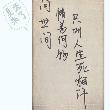 问世间
情为何物
只叫人生死相许